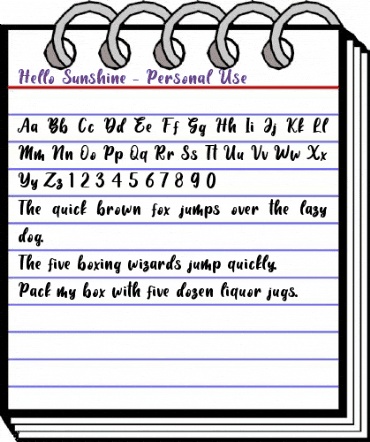 Hello Sunshine - Personal Use
Aa Bb Cc Dd Ee Ff Gg Hh Ii Jj Kk Ll
Mm Nn Oo Pp Qq Rr Ss Tt Uu Vv Ww Xx
Yy Zz 1 2 3 4 5 6 7 8 9 0
The quick brown fox jumps over the lazy
dog.
The five boxing wizards jump quickly.
Pack my box with five dozen liquor jugs.